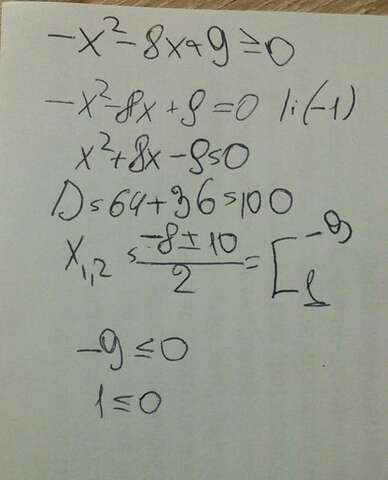 -x²-8x+9≥0
-x²-8x+9=0 |:(-1)
x²+8x-9=0
D=64+36=100
x₁,₂ = (-8±10)/2 = [-9 1
-9≤0
1≤0